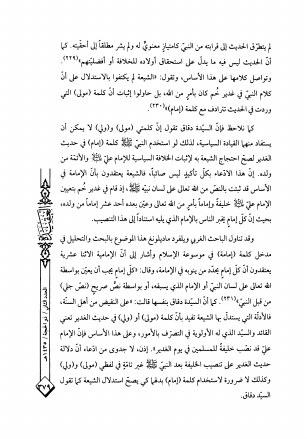 لم يتطرّق الحديث إلى قرابته من النبيّ كامتياز معنويّ له ولم يشر مطلقاً إلى أحقّيته. كما
أنّ الحديث ليس فيه ما يدلّ على استحقاق أولاده للخلافة أو أفضليّتهم»(٢٢٩).
وتواصل كلامها على هذا الأساس، وتقول: «الشيعة لم يكتفوا بالاستدلال على أنّ
كلام النبيّ في غدير خم كان بأمرٍ من الله، بل حاولوا إثبات أنّ كلمة (مولى) التي
وردت في الحديث تترادف مع كلمة (إمام)»(٢٣٠).
كما نلاحظ فإنّ السيّدة دقاق تقول إنّ كلمتي (مولى) و(ولي) لا يمكن أن
يستفاد منها القيادة السياسية، لذلك لو استخدم النبي ﷺ كلمة (إمام) في حديث
الغدير لصحّ احتجاج الشيعة به لإثبات الخلافة السياسية للإمام علي والأئمة من
ولده. إنّ هذا الادّعاء بكلّ تأكيدٍ ليس صائباً، فالشيعة يعتقدون بأنّ الإمامة في
الأساس قد ثبتت بالنصّ من الله تعالى على لسان نبيّه ﷺ، إذ قام في غدير خم بتعيين
الإمام علي خليفةً وإماماً بأمرٍ من الله تعالى وعيّن بعده أحد عشر إماماً من ولده،
بحيث إنّ كلّ إمامٍ يخبر الناس بالإمام الذي يليه استناداً إلى هذا التنصيب.
وقد تناول الباحث الغربي ويلفرد ماديلونغ هذا الموضوع بالبحث والتحليل في
مدخل كلمة (إمامة) في موسوعة الإسلام وأشار إلى أنّ الإمامية الاثنا عشرية
يعتقدون أنّ كلّ إمامٍ يحدّد من ينوبه في الإمامة، وقال: «كلّ إمامٍ يجب أن يعيّن بواسطة
الله تعالى على لسان النبيّ أو الإمام الذي يسبقه، أو بواسطة نصٍّ صريحٍ (نصّ جلي)
من قبل النبيّ»(٢٣١). كما أنّ السيّدة دقاق بنفسها قالت: «على النقيض من أهل السنّة،
فالأدلّة التي يستدلّ بها الشيعة تفيد بأنّ كلمة (مولى) أو (ولي) في حديث الغدير تعني
القائد والسيّد الذي له الأولوية في التصرّف بالأمور، وعلى هذا الأساس فإنّ الإمام
عليّ قد نصّب خليفةً للمسلمين في يوم الغدير». إذن، لا جدوى من ادّعاء أنّ دلالة
حديث الغدير على تنصيب الخليفة بعد النبي ﷺ غير تامّةٍ في لفظي (مولى) و(ولي)
وكذلك لا ضرورة لاستخدام كلمة (إمام) بدلهما كي يصحّ استدلال الشيعة كما تقول
السيّدة دقاق.
العقيدة
العدد الثاني / ذو الحجة / ١٤٣٥هـ
٣٧٩